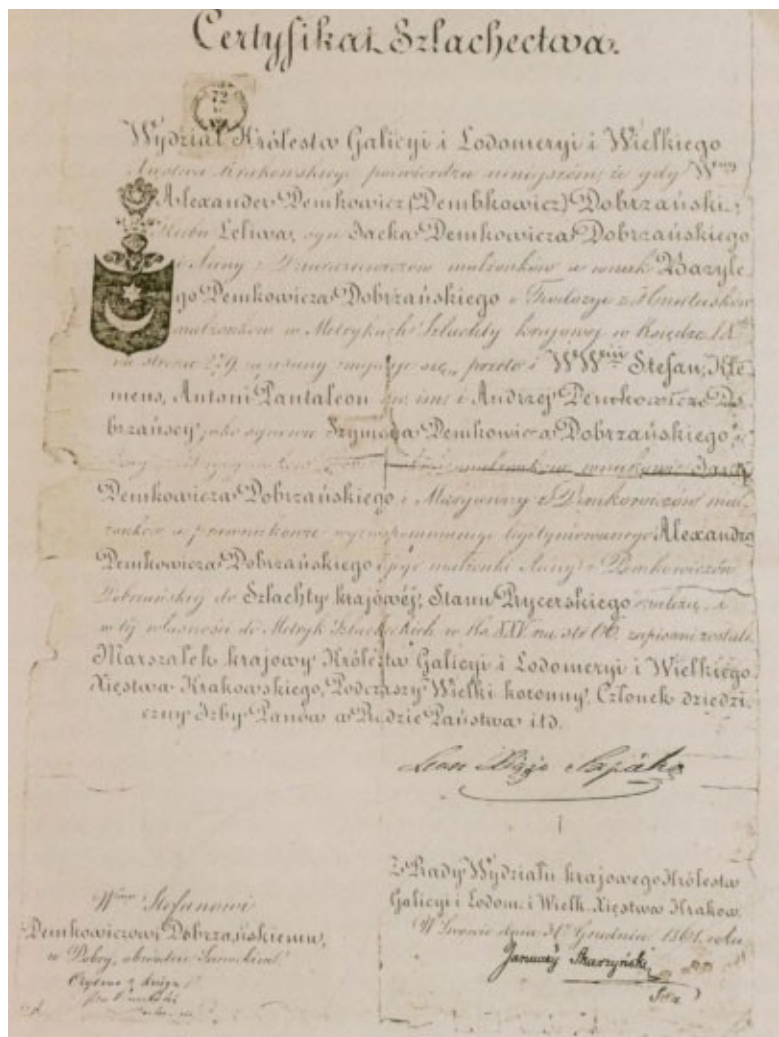 Certyfikat Szlachectwa.
72
Wydział Królestw Galicyi i Lodomeryi i Wielkiego
Xięstwa Krakowskiego poświadcza niniejszém, że gdy Wny
Alexander Demkowicz (Dembkowicz) Dobrzański,
Herbu Leliwa, syn Jacka Demkowicza Dobrzańskiego
i Anny z małżonków a wnuk Bazyle-
go Demkowicza Dobrzańskiego i Teodozyi z
małżonków w Metrykach Szlachty krajowéj w Księdze
na stronie 229 zapisany znajduje się, przeto i WWni Stefan, Kle-
mens, Antoni Pantaleon im. i Andrzej Demkowicze Do-
brzańscy, jako synowie Szymona Demkowicza Dobrzańskiego, i
małżonków wnukowie
Demkowicza Dobrzańskiego i Maryanny z Demkowiczów mał-
żonków a prawnukowie wyżwspomnianego legitymowanego Alexandra
Demkowicza Dobrzańskiego i jego małżonki Anny z Demkowiczów
Dobrzańskiéj do Szlachty krajowéj, Stanu Rycerskiego należą, i
w téj własności do Metryk Szlacheckich w Ks. XXV. na str. 66. zapisani zostali.
Marszałek krajowy Królestw Galicyi i Lodomeryi i Wielkiego
Xięstwa Krakowskiego, Podczaszy Wielki koronny, Członek dziedzi-
czny Izby Panów w Radzie Państwa itd.
Leon Xiąże Sapieha
Z Rady Wydziału krajowego Królestw
Galicyi i Lodom. i Wielk. Xięstwa Krakow.
We Lwowie dnia 31 Grudnia 1861. roku
January Skarzyński
Wmu Stefanowi
Demkowiczowi Dobrzańskiemu,
w Dobry, obwodzie Sanockim